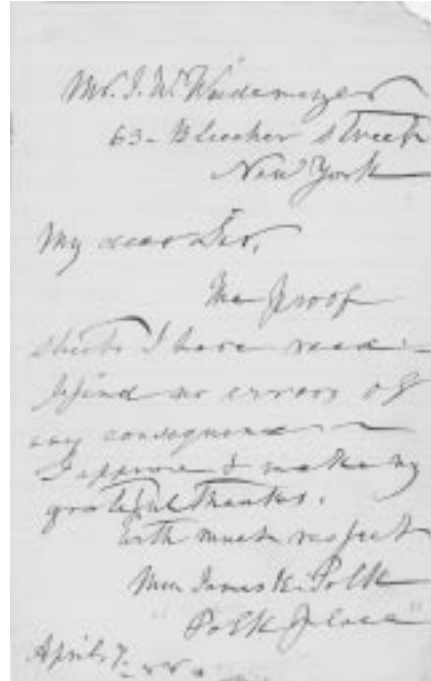 Mr. J. W. Weidemeyer
63 - Bleecker street
New York
My dear Sir,
The proof
sheets I have read -
& find no errors of
any consequence -
I approve & make my
grateful thanks.
With much respect
Mrs James K. Polk
"Polk Place"
April 7.